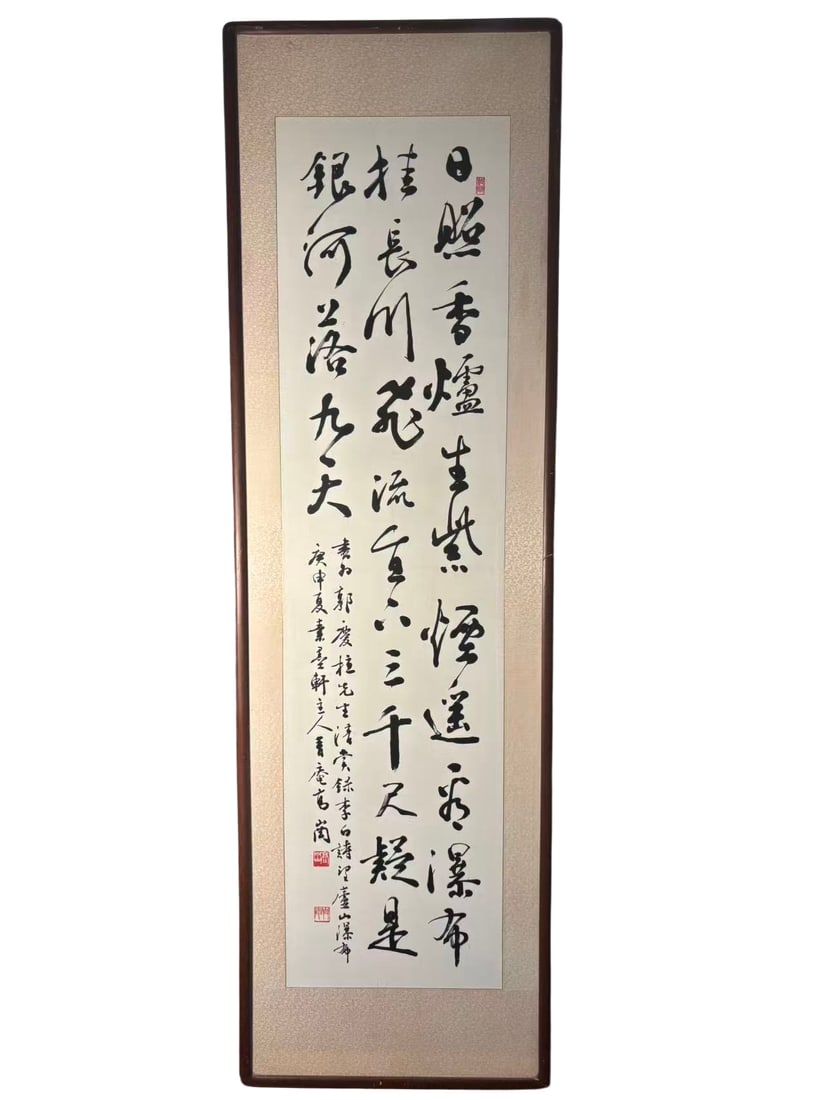 日照香爐生紫煙遙看瀑布
挂長川飛流直下三千尺疑是
銀河落九天
書為郭慶柱先生清賞錄李白詩望廬山瀑布
庚申夏素墨軒主人庵高崗